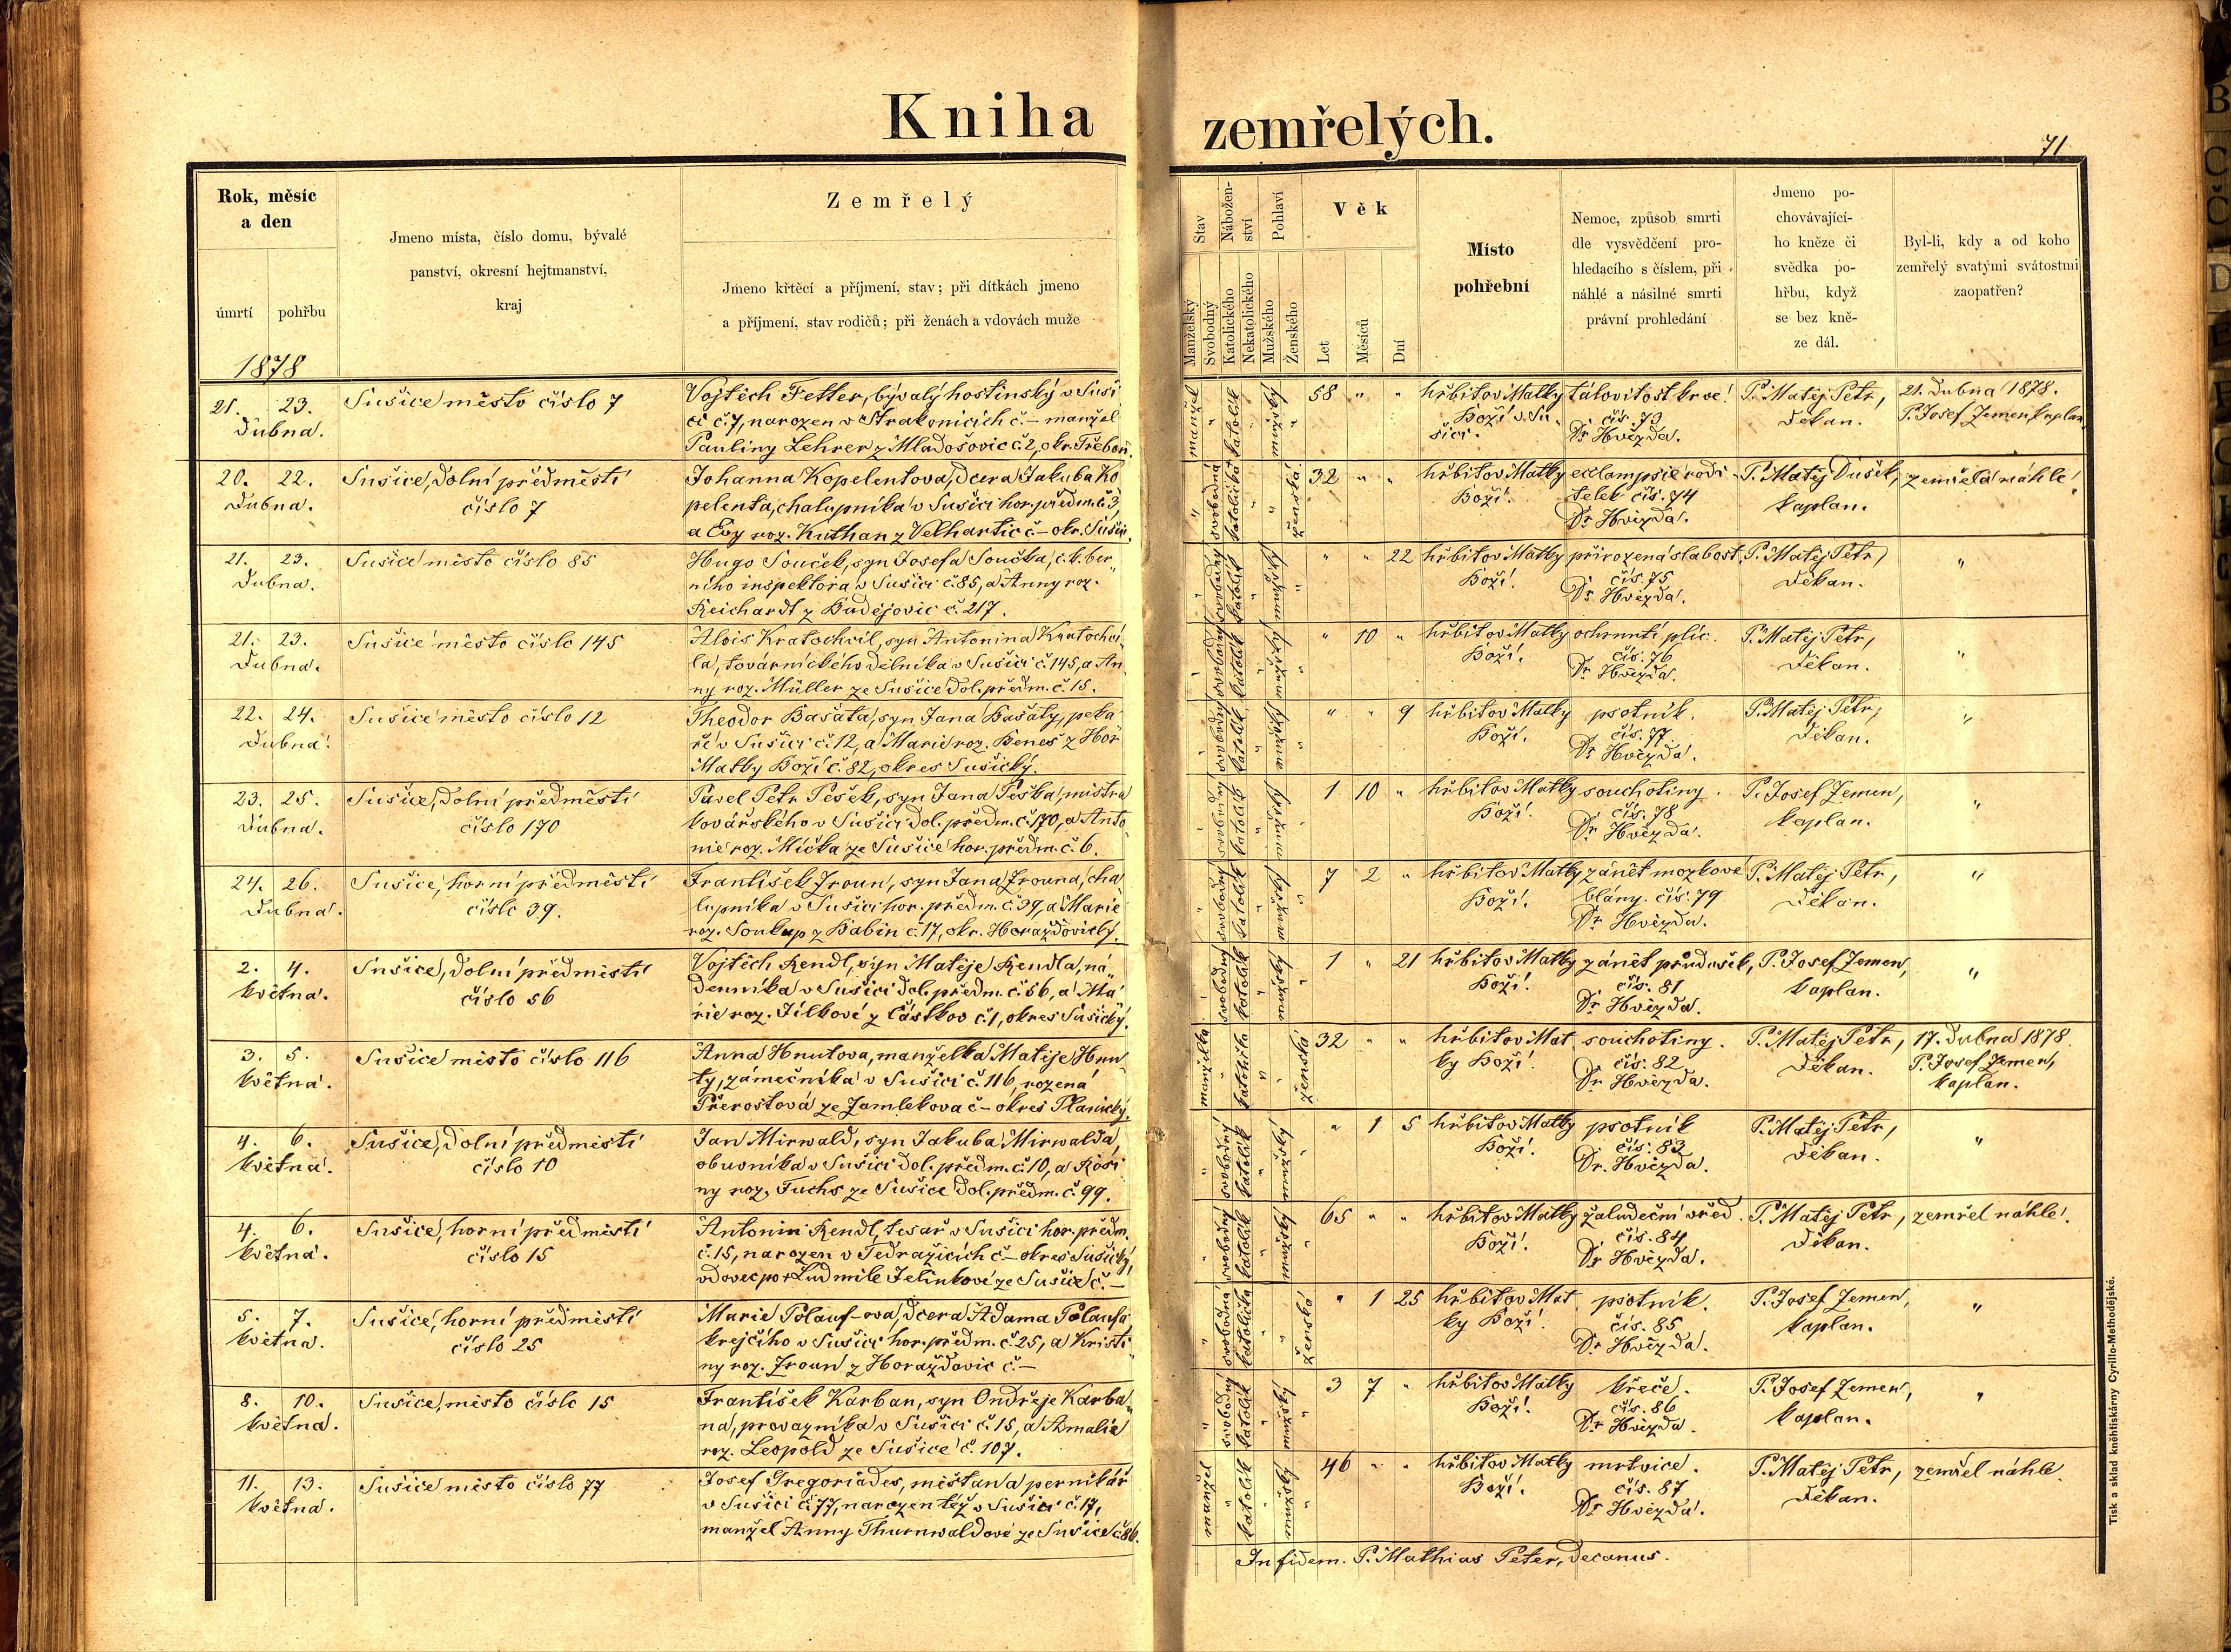 Kniha zemřelých.
71
Rok, měsíc
a den
úmrtí
pohřbu
1878
Jmeno místa, číslo domu, bývalé
panství, okresní hejtmanství,
kraj
Zemřelý
Jmeno křtěcí a příjmení, stav; při dítkách jmeno
a příjmení, stav rodičů; při ženách a vdovách muže
Stav
Nábožen-
ství
Pohlaví
Manželský
Svobodný
Katolického
Nekatolického
Mužského
Ženského
Věk
Let
Měsíců
Dní
Místo
pohřební
Nemoc, způsob smrti
dle vysvědčení pro-
hledacího s číslem, při
náhlé a násilné smrti
právní prohledání
Jmeno po-
chovávající-
ho kněze či
svědka po-
hřbu, když
se bez kně-
ze dál.
Byl-li, kdy a od koho
zemřelý svatými svátostmi
zaopatřen?
21. 23.
Dubna.
Sušice město číslo 7
Vojtěch Fetter, bývalý hostinský v Suši
ci č. 7, narozen v Strakonicích č. – manžel
Pauliny Lehrer z Mladošovic č. 2, okr. Třeboň.
manžel " katolik " mužský "
58 " "
hřbitov Matky
Boží v Su
šici.
čís. 73
Dr Hvězda.
P. Matěj Petr,
Děkan.
21. Dubna 1878.
P. Josef Zemen, kaplan
20. 22.
Dubna.
Sušice, dolní předměstí
číslo 7
Johanna Kopelentova, dcera Jakuba Ko
pelenta, chalupníka v Sušici hor. předm. č. 3,
a Evy roz. Kuthan z Velhartic č – okr. Sušic.
" svobodná katolička " " ženská
32 " "
hřbitov Matky
Boží.
eclampsie rodi
telek čís. 74
Dr Hvězda.
P. Matěj Dušek,
kaplan.
zemřela náhle.
21. 23.
Dubna.
Sušice město číslo 85
Hugo Souček, syn Josefa Součka, c. k. ber„
ního inspektora v Sušici č. 85, a Anny roz.
Reichardt z Budějovic č. 217.
" svobodný katolik " mužský "
" " 22
hřbitov Matky
Boží.
přirozená slabost
čís. 75
Dr Hvězda.
P. Matěj Petr,
Děkan.
"
21. 23.
Dubna.
Sušice město číslo 145
Alois Kratochvil, syn Antonina Kratochví
la, továrnického dělníka v Sušici č. 145, a An
ny roz. Müller ze Sušice dol. předm. č. 15.
" svobodný katolik " mužský "
" 10 "
hřbitov Matky
Boží.
ochrnutí plic.
čís. 76
Dr Hvězda.
P. Matěj Petr,
Děkan.
"
22. 24.
Dubna.
Sušice město číslo 12
Theodor Bašata, syn Jana Bašaty, peka
ře v Sušici č. 12, a Marie roz. Beneš z Hor
Matky Boží č. 82, okres Sušický.
" svobodný katolik " mužský "
" " 9
hřbitov Matky
Boží.
psotník.
čís. 77.
Dr Hvězda.
P. Matěj Petr,
Děkan.
"
23. 25.
Dubna.
Sušice, dolní předměstí
číslo 170
Pavel Petr Pešek, syn Jana Peška, mistra
kovářského v Sušici dol. předm. č. 170, a Anto
nie roz. Mička ze Sušice hor. předm. č. 6.
" svobodný katolik " mužský "
1 10 "
hřbitov Matky
Boží.
souchotiny.
čís. 78
Dr Hvězda.
P. Josef Zemen,
kaplan.
"
24. 26.
Dubna.
Sušice, horní předměstí
číslo 39.
František Zroun, syn Jana Zrouna, cha
lupníka v Sušici hor. předm. č. 39, a Marie
roz. Soukup z Babin č. 17, okr. Horažďovický.
" svobodný katolik " mužský "
7 2 "
hřbitov Matky
Boží.
zánět mozkové
blány. čís. 79
Dr Hvězda.
P. Matěj Petr,
Děkan.
"
2. 4.
května.
Sušice, dolní předměstí
číslo 56
Vojtěch Rendl, syn Matěje Rendla, ná„
denníka v Sušici dol. předm. č. 56, a Ma
rie roz. Jílkové z Částkov č. 1, okres Sušický.
" svobodný katolik " mužský "
1 " 21
hřbitov Matky
Boží.
zánět průdušek,
čís. 81
Dr Hvězda.
P. Josef Zemen,
kaplan.
"
3. 5.
května.
Sušice město číslo 116
Anna Hnutova, manželka Matěje Hnu
ty, zámečníka v Sušici č. 116, rozená
Přerostová ze Zamlekova č – okres Planický.
manželka " katolička " " ženská
32 " "
hřbitov Mat
ky Boží.
souchotiny.
čís. 82
Dr Hvězda.
P. Matěj Petr,
Děkan.
17. Dubna 1878.
P. Josef Zemen,
kaplan.
4. 6.
května.
Sušice, dolní předměstí
číslo 10
Jan Mirwald, syn Jakuba Mirwalda
obuvníka v Sušici dol. předm. č. 10, a Rosi
ny roz. Fuchs ze Sušice dol. předm. č. 99.
" svobodný katolik " mužský "
" 1 5
hřbitov Matky
Boží.
psotník
čís. 83
Dr. Hvězda.
P. Matěj Petr,
Děkan.
"
4. 6.
května.
Sušice, horní předměstí
číslo 15
Antonin Rendl, tesař v Sušici hor. předm.
č. 15, narozen v Tedražicích č – okres Sušický,
vdovec po † Ludmile Jelinkové ze Sušice č. –
" svobodný katolik " mužský "
65 " "
hřbitov Matky
Boží.
žaludeční vřed.
čís. 84
Dr Hvězda.
P. Matěj Petr,
Děkan.
zemřel náhle.
5. 7.
května.
Sušice, horní předměstí
číslo 25
Marie Polauf-ova, dcera Adama Polaufa
krejčího v Sušici hor. předm. č. 25, a Kristi
ny roz. Zroun z Horažďovic č. –
" svobodná katolička " " ženská
" 1 25
hřbitov Mat
ky Boží.
psotník.
čís. 85
Dr Hvězda.
P. Josef Zemen,
kaplan.
"
8. 10.
května.
Sušice, město číslo 15
František Karban, syn Ondřeje Karba„
na, provazníka v Sušici č. 15, a Amalie
roz. Leopold ze Sušice č. 107.
" svobodný katolik " mužský "
3 7 "
hřbitov Matky
Boží.
křeče.
čís. 86
Dr Hvězda.
P. Josef Zemen,
kaplan.
"
11. 13.
května.
Sušice město číslo 77
Josef Gregoriades, měšťan a pernikář
v Sušici č. 77, narozen též v Sušici č. 17,
manžel Anny Thurnwaldové ze Sušice č. 86.
manžel " katolik " mužský "
46 " "
hřbitov Matky
Boží.
mrtvice.
čís. 87
Dr Hvězda.
P. Matěj Petr,
Děkan.
zemřel náhle.
In fidem. P. Mathias Peter, Decanus.
Tisk a sklad kněhtiskárny Cyrillo-Methodějské.